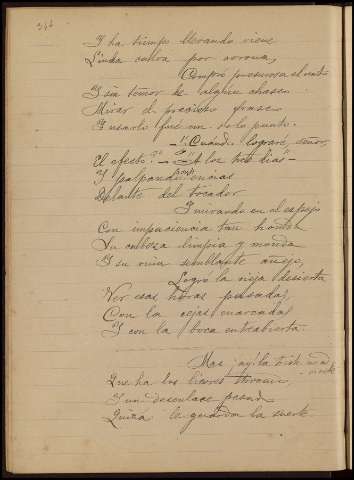 I ha tiempo llevando viene
Linda calva por corona,
Compró presurosa el unto
I sin temor de algun chasco
Mirar el precioso frasco
I usarlo fué un solo punto.
—"Cuándo lograré, señor,
El efecto?" — "A los tres dias" —
I palpando encias
Delante del tocador
I mirando en el espejo
Con impaciencia tan honda
Su cabeza limpia y monda
I su ruin semblante añejo,
Logró la vieja desierta
Ver esas horas pasadas,
Con las cejas marcadas
I con la boca entreabierta.
Mas ¡ay! la triste no
Que ha los
I un desenlace
Quizá le guarda la suerte